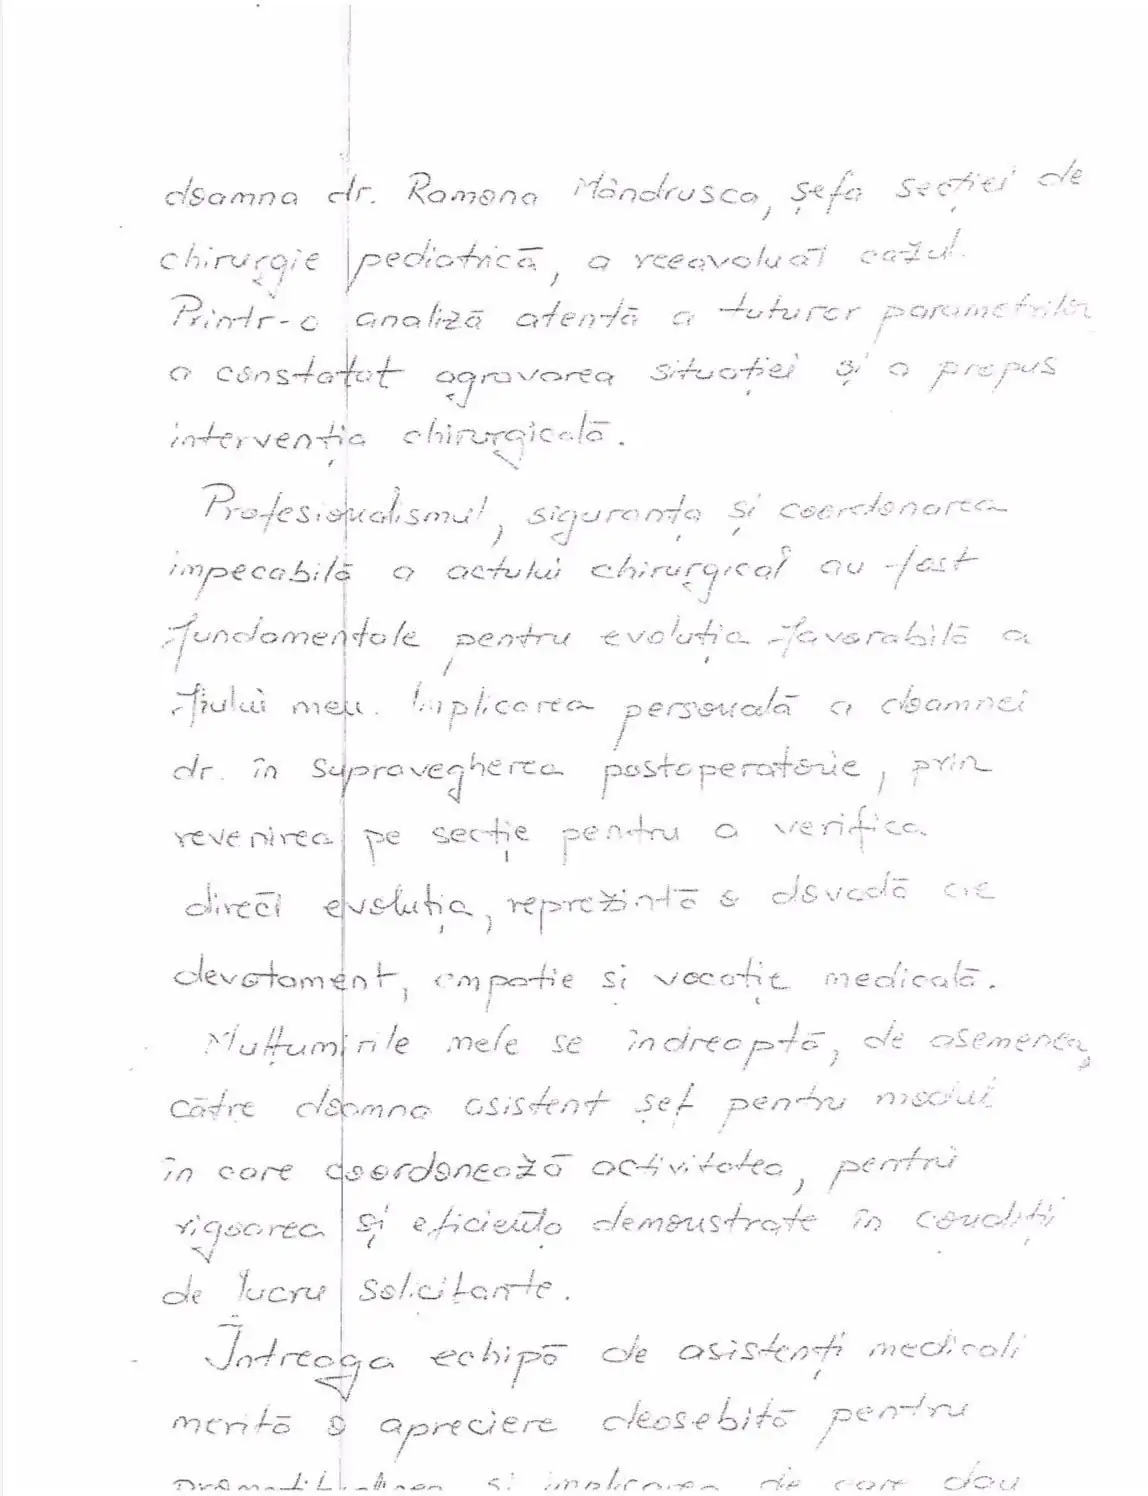 doamna dr. Ramona Mândrusca, șefa secției de
chirurgie pediatrică, a reeavoluat cazul.
Printr-o analiză atentă a tuturor parametrilor
a constatat agravarea situației și a propus
intervenția chirurgicală.
Profesionalismul, siguranța și coordonarea
impecabilă a actului chirurgical au fost
fundamentale pentru evoluția favorabilă a
fiului meu. Implicarea personală a doamnei
dr. în supravegherea postoperatorie, prin
revenirea pe secție pentru a verifica
direct evoluția, reprezintă o dovadă de
devotament, empatie si vocație medicală.
Mulțumirile mele se îndreaptă, de asemenea,
către doamna asistent șef pentru modul
în care coordonează activitatea, pentru
rigoarea și eficiența demonstrate în condiții
de lucru solicitante.
Întreaga echipă de asistenți medicali
merită o apreciere deosebită pentru
promptitudinea și implicarea de care dau